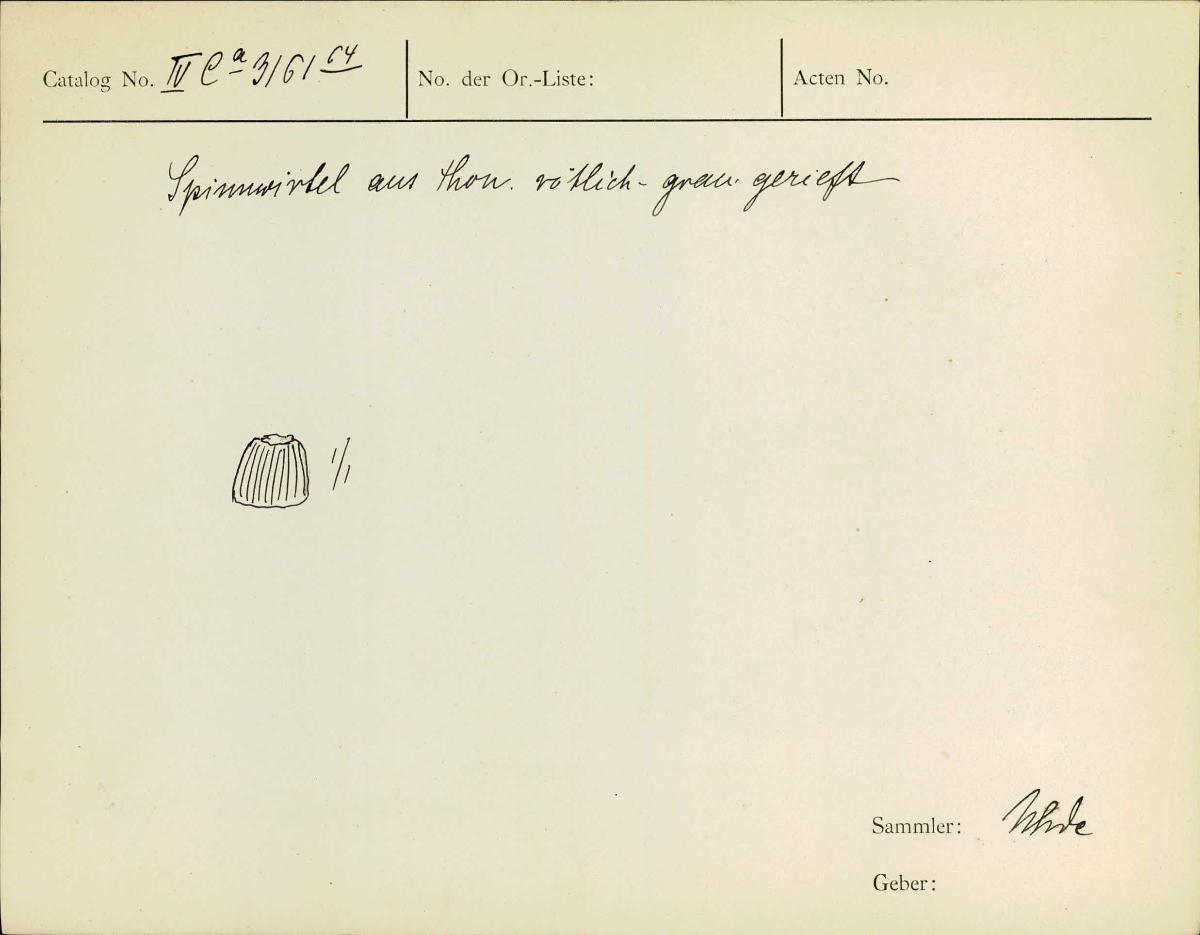 Catalog No. IV Ca 3161 64 No. der Or.-Liste: Acten No.
Spinnwirtel aus Thon. rötlich-grau. gerieft
1/1
Sammler: Uhde
Geber: